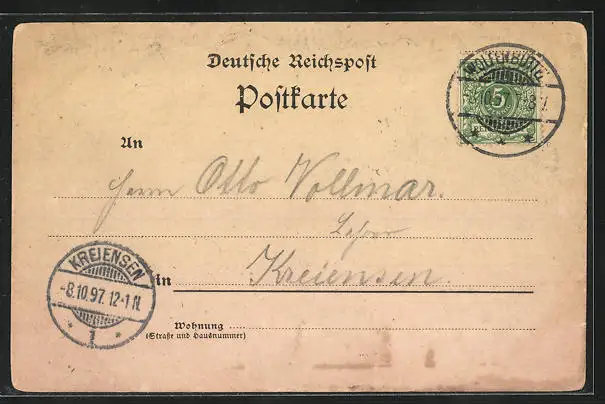 Deutsche Reichspost
Postkarte
5
An
Herrn Otto Vollmar.
KREIENSEN
-8.10.97. 12-1 N.
* 1 *
in Kreiensen.
Wohnung
(Straße und Hausnummer)